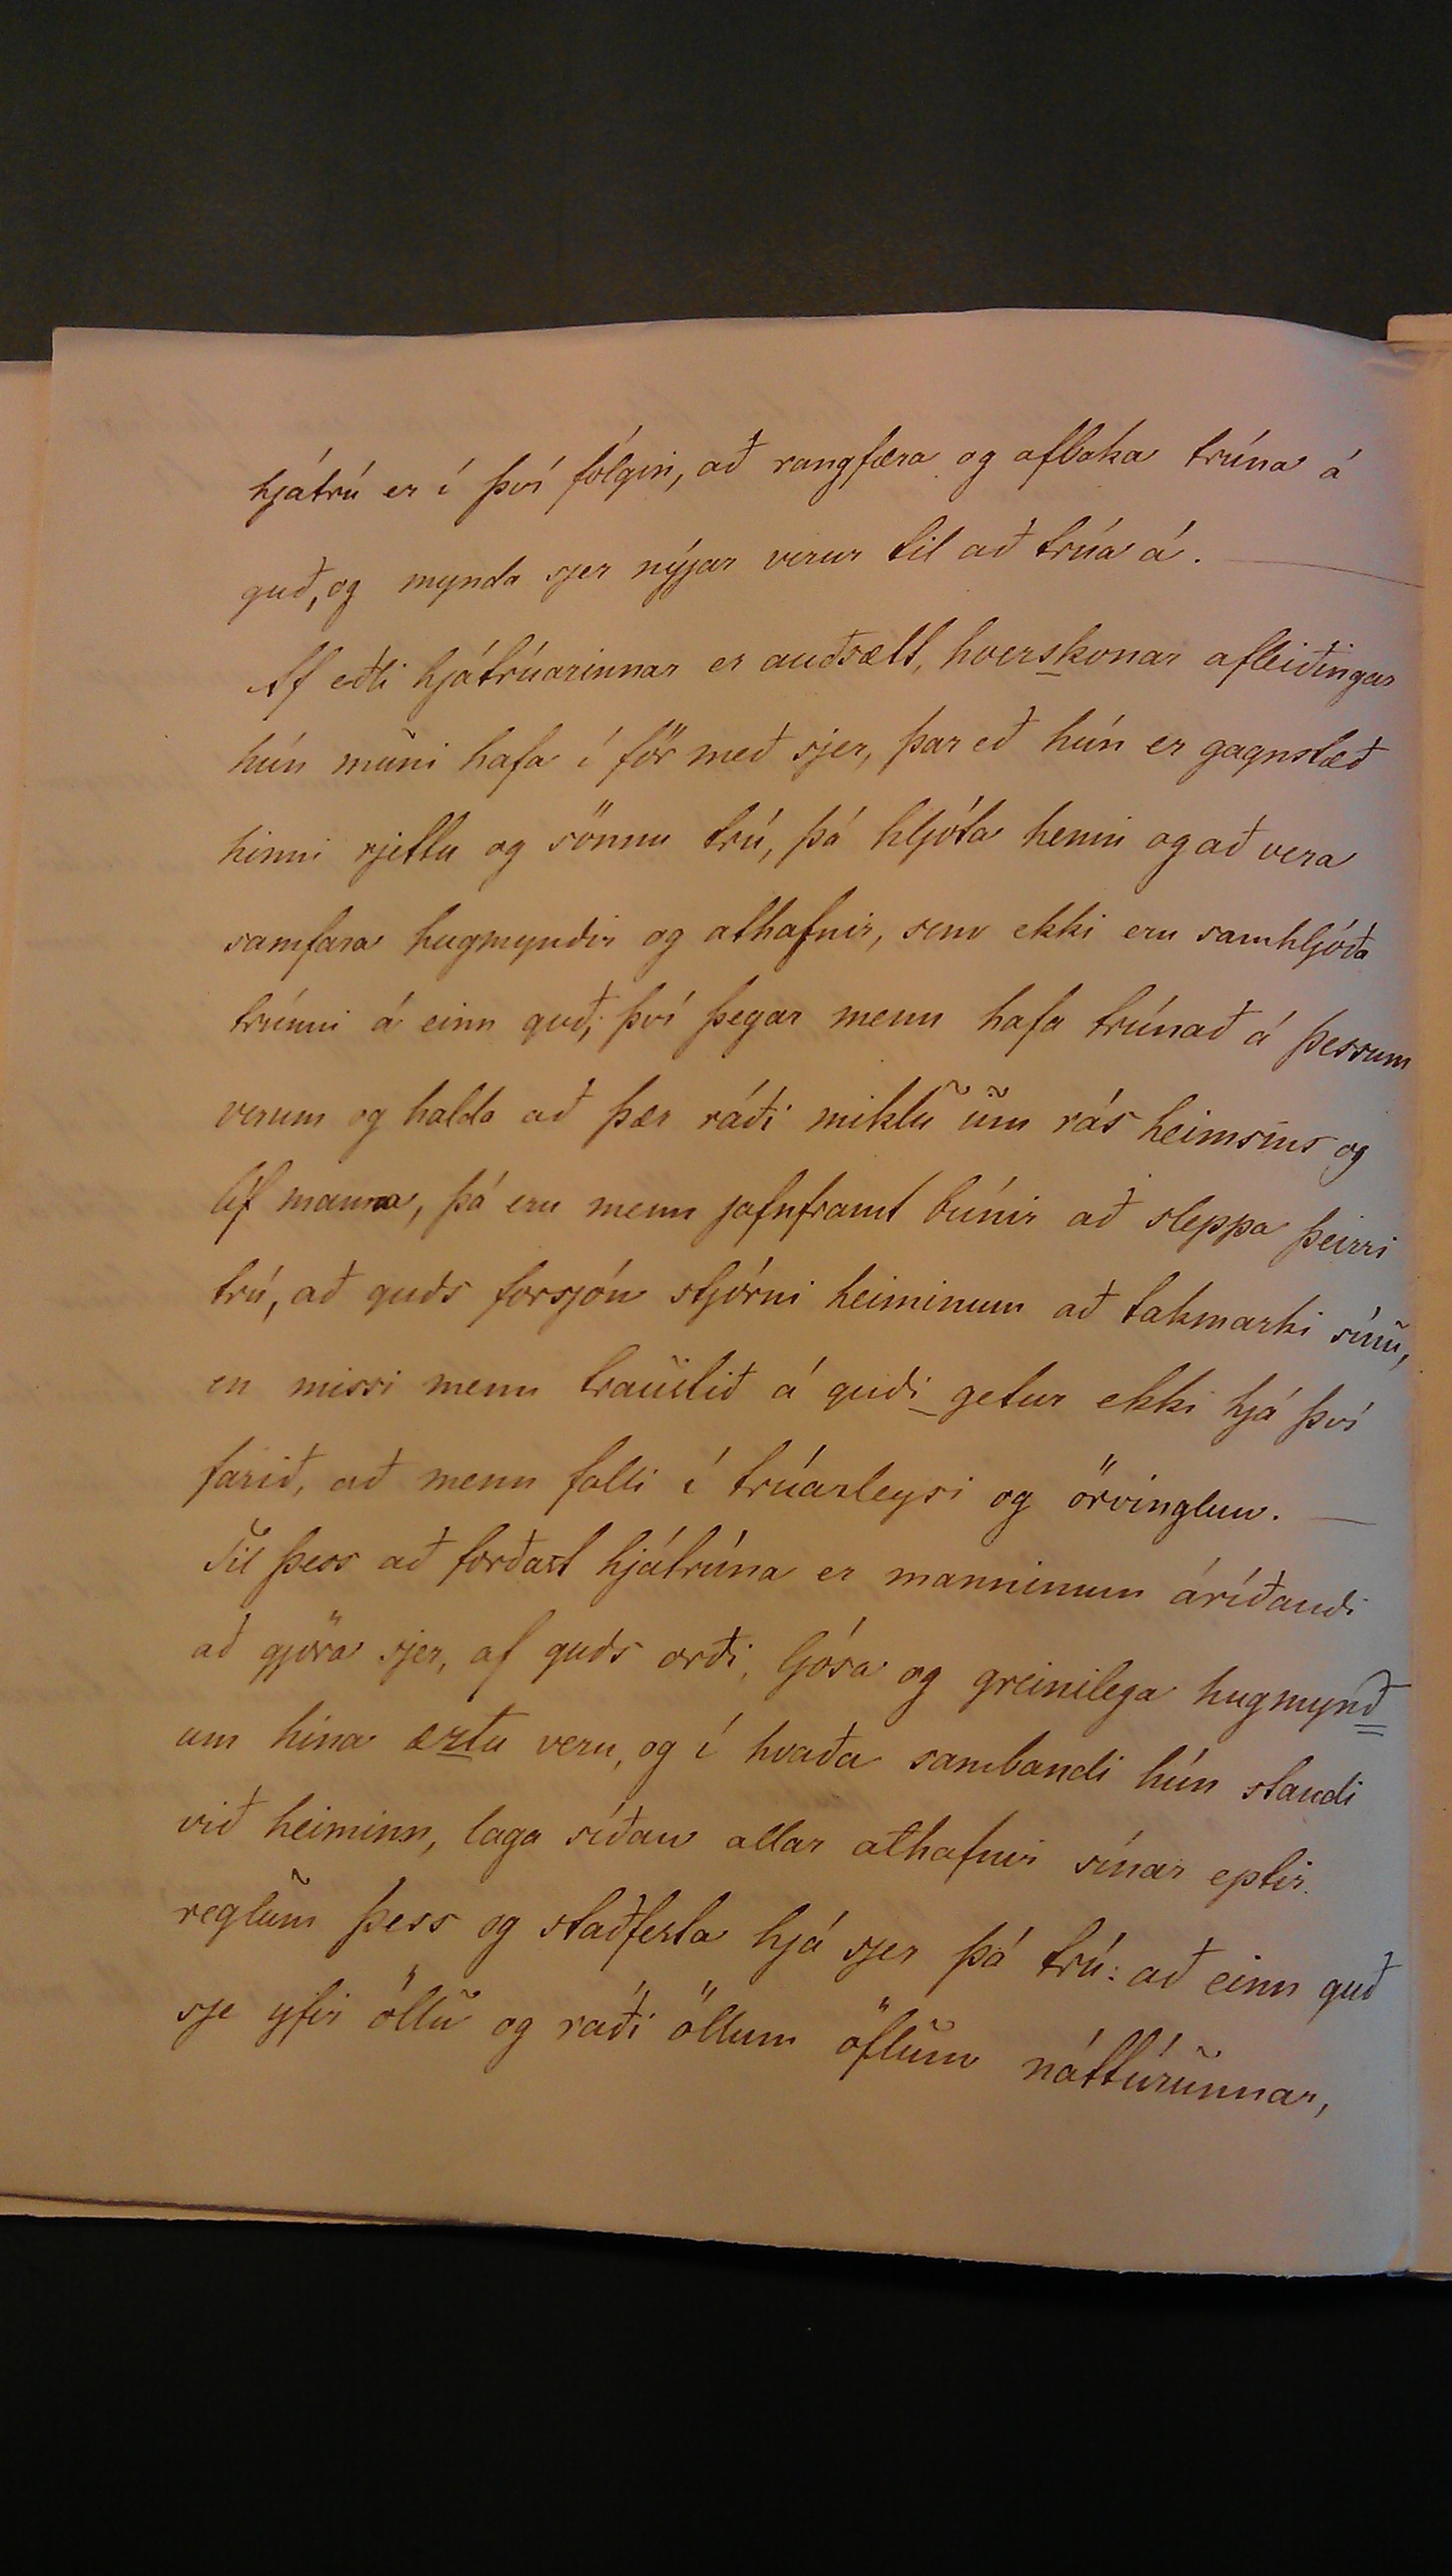 hjátrú er í því fólgin, að rangfæra og afbaka trúna á
guð, og mynda sjer nýjar verur til að trúa á. —
Af eðli hjátrúarinnar er auðsætt, hverskonar afleiðingar
hún muni hafa í för með sjer, þar eð hún er gagnstæð
hinni rjettu og sönnu trú, þá hljóta henni og að vera
samfara hugmyndir og athafnir, sem ekki eru samhljóða
trúnni á einn guð; því þegar menn hafa trúnað á þessum
verum og halda að þær ráði miklu um rás heimsins og
líf manna, þá eru menn jafnframt búnir að sleppa þeirri
trú, að guðs forsjón stjórni heiminum að takmarki sínu,
en missi menn traustið á guði getur ekki hjá því
farið, að menn falli í trúarleysi og örvinglun. —
Til þess að forðast hjátrúna er manninum áríðandi
að gjöra sjer, af guðs orði, ljósa og greinilega hugmynð
um hina æztu veru, og í hvaða sambandi hún standi
við heiminn, laga síðan allar athafnir sínar eptir
reglum þess og staðfesta hjá sjer þá trú: að einn guð
sje yfir öllu og ráði öllum öflum náttúrunnar,